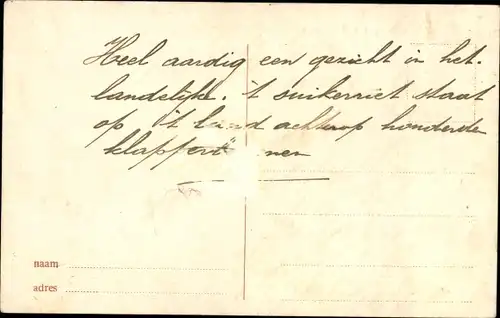 Heel aardig een gezicht in het
landelijke. 't suikerriet staat
op 't land achterop honderde
klappert nen
naam
adres